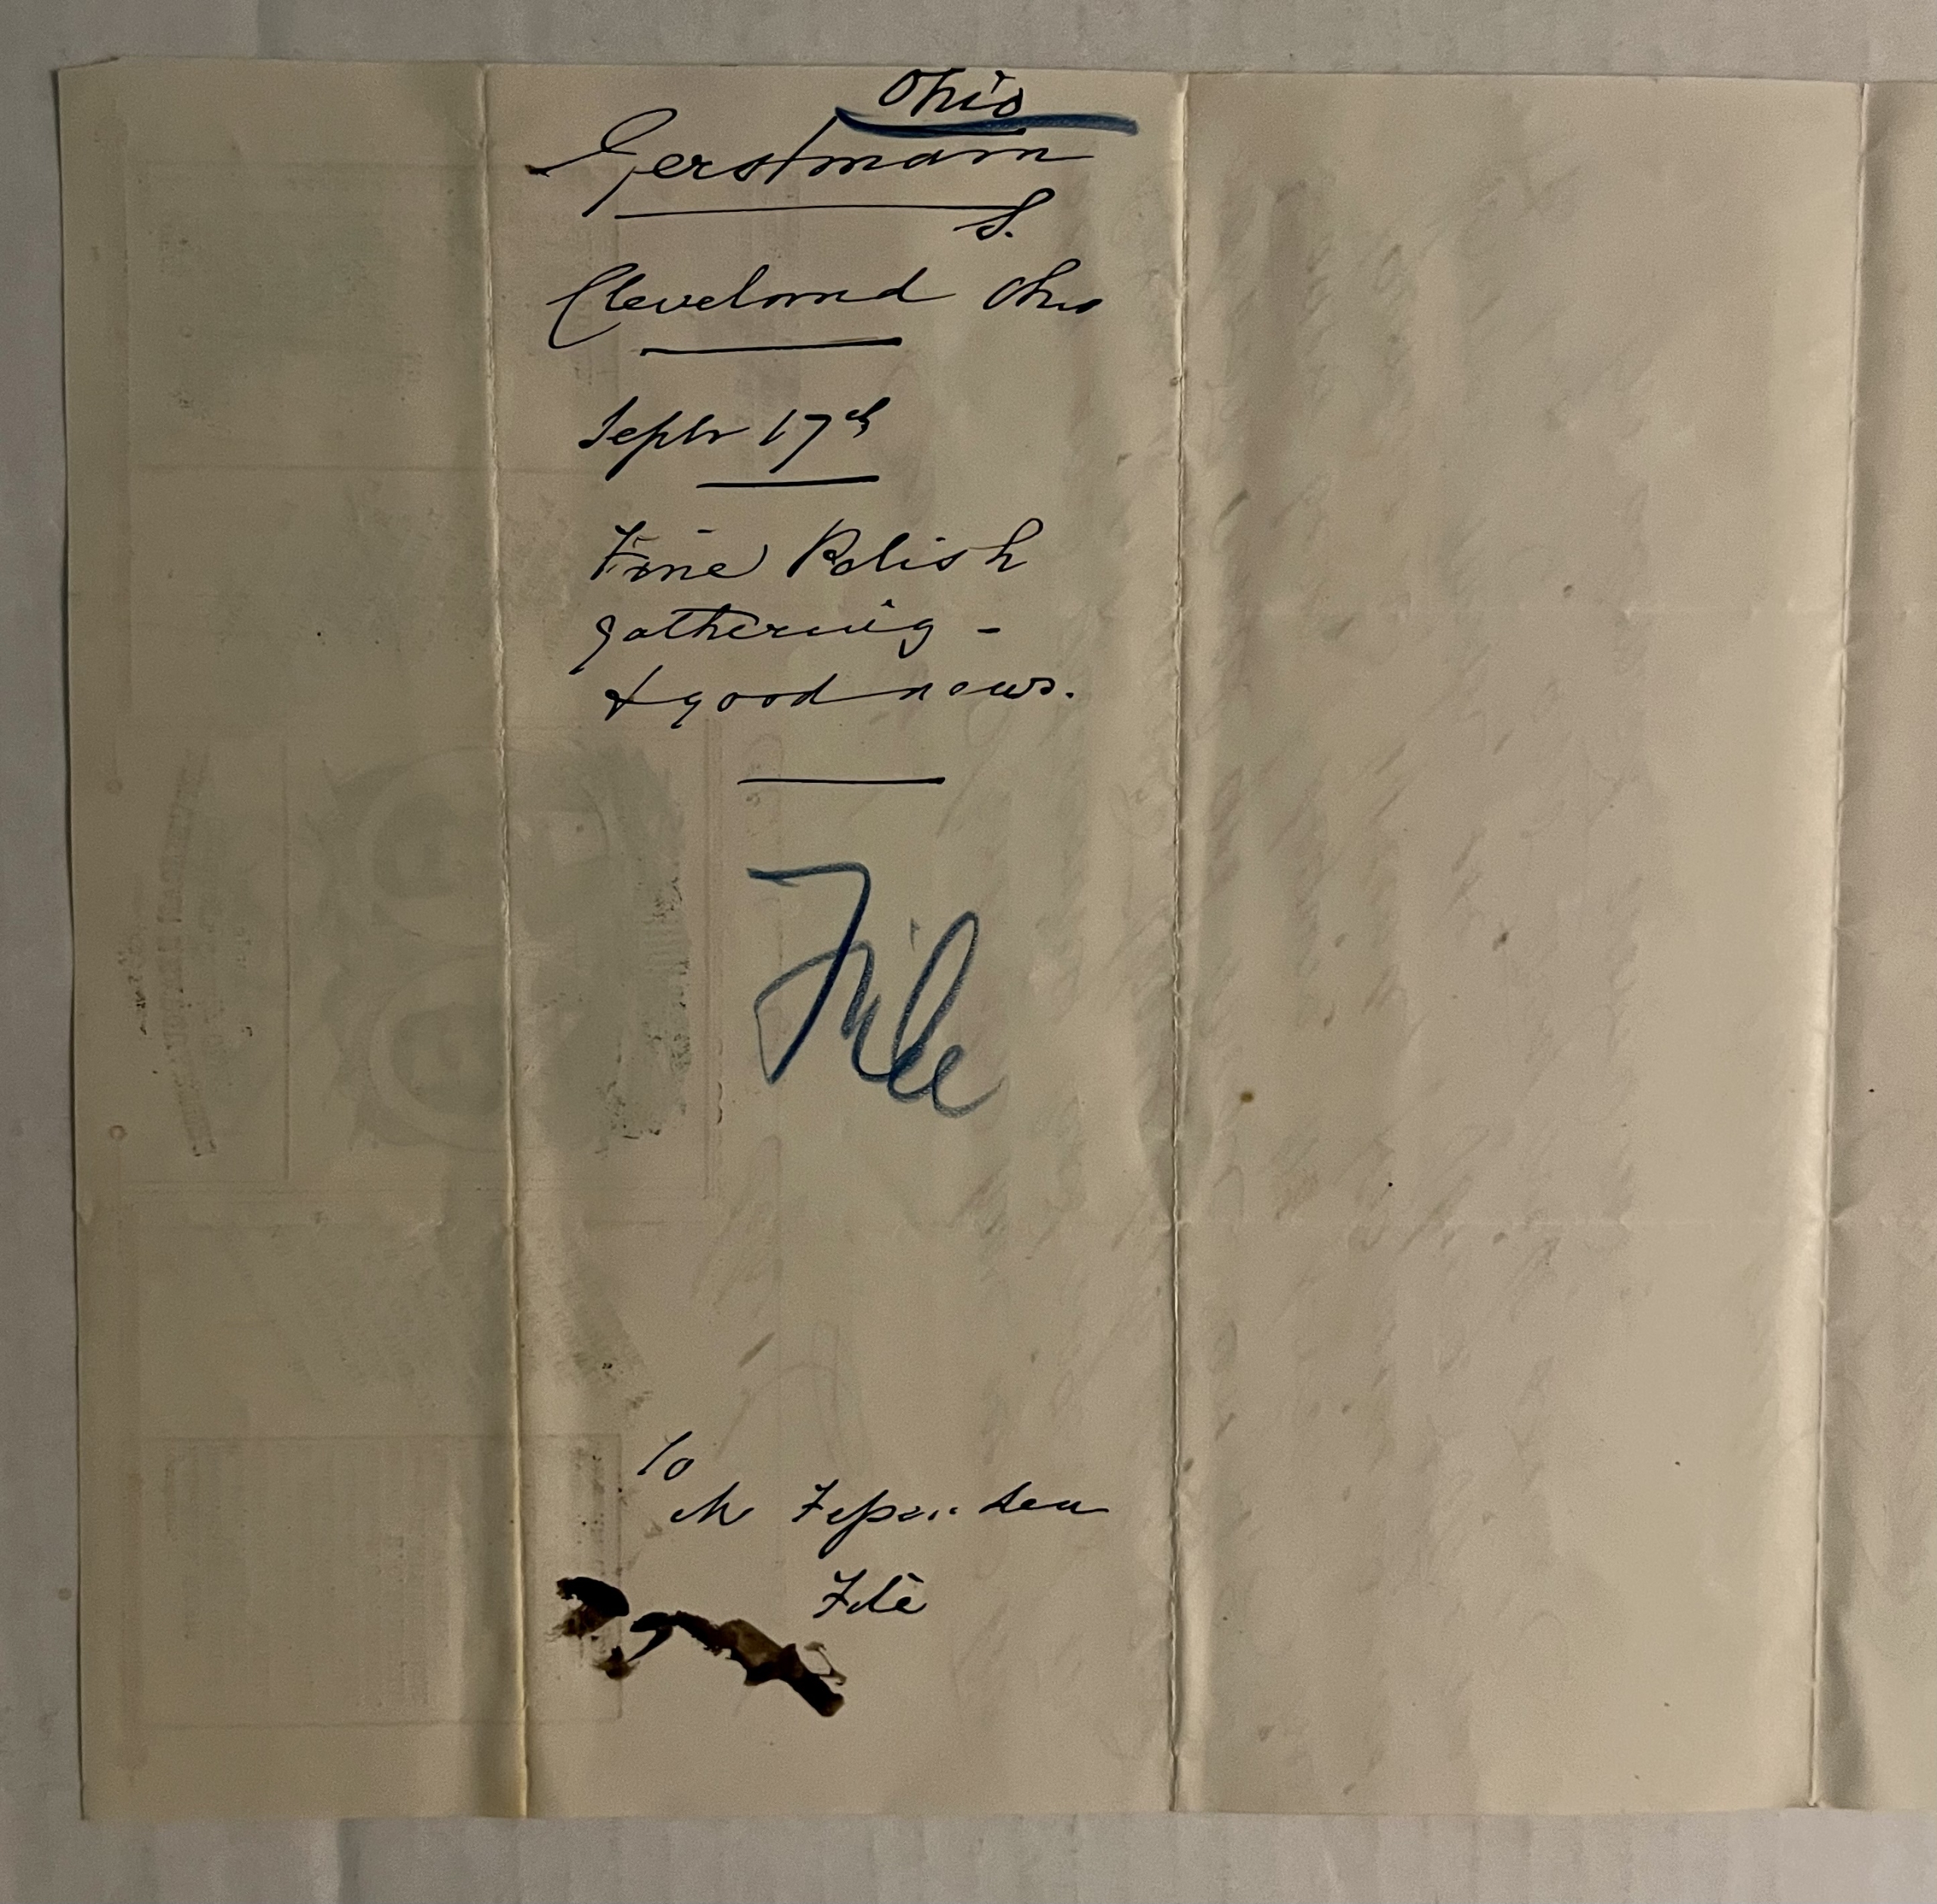 Ohio
Gerstmann
S.
Cleveland Ohio
Septr 17th
Fine Polish
gathering -
& good news.
File
To
Mr Fessenden
File